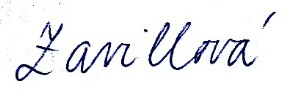 Zavillová